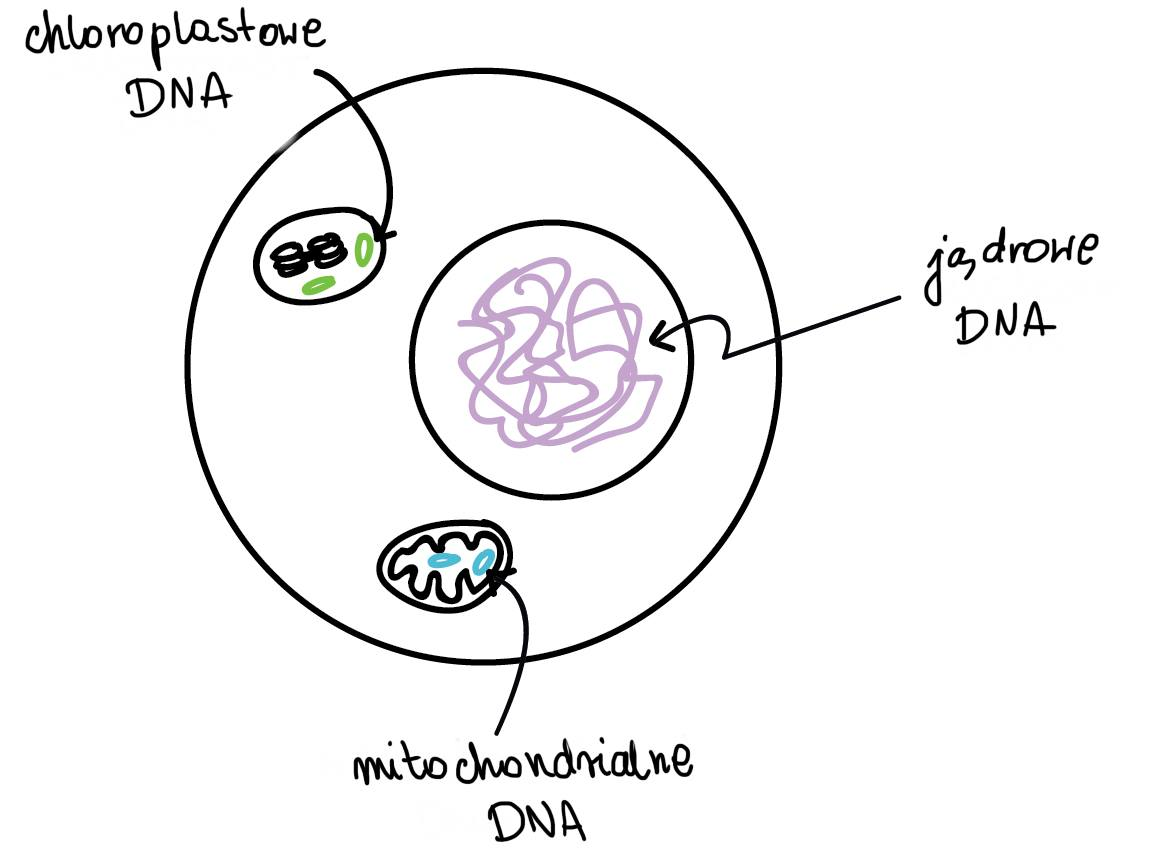 chloroplastowe
DNA
jądrowe
DNA
mitochondrialne
DNA